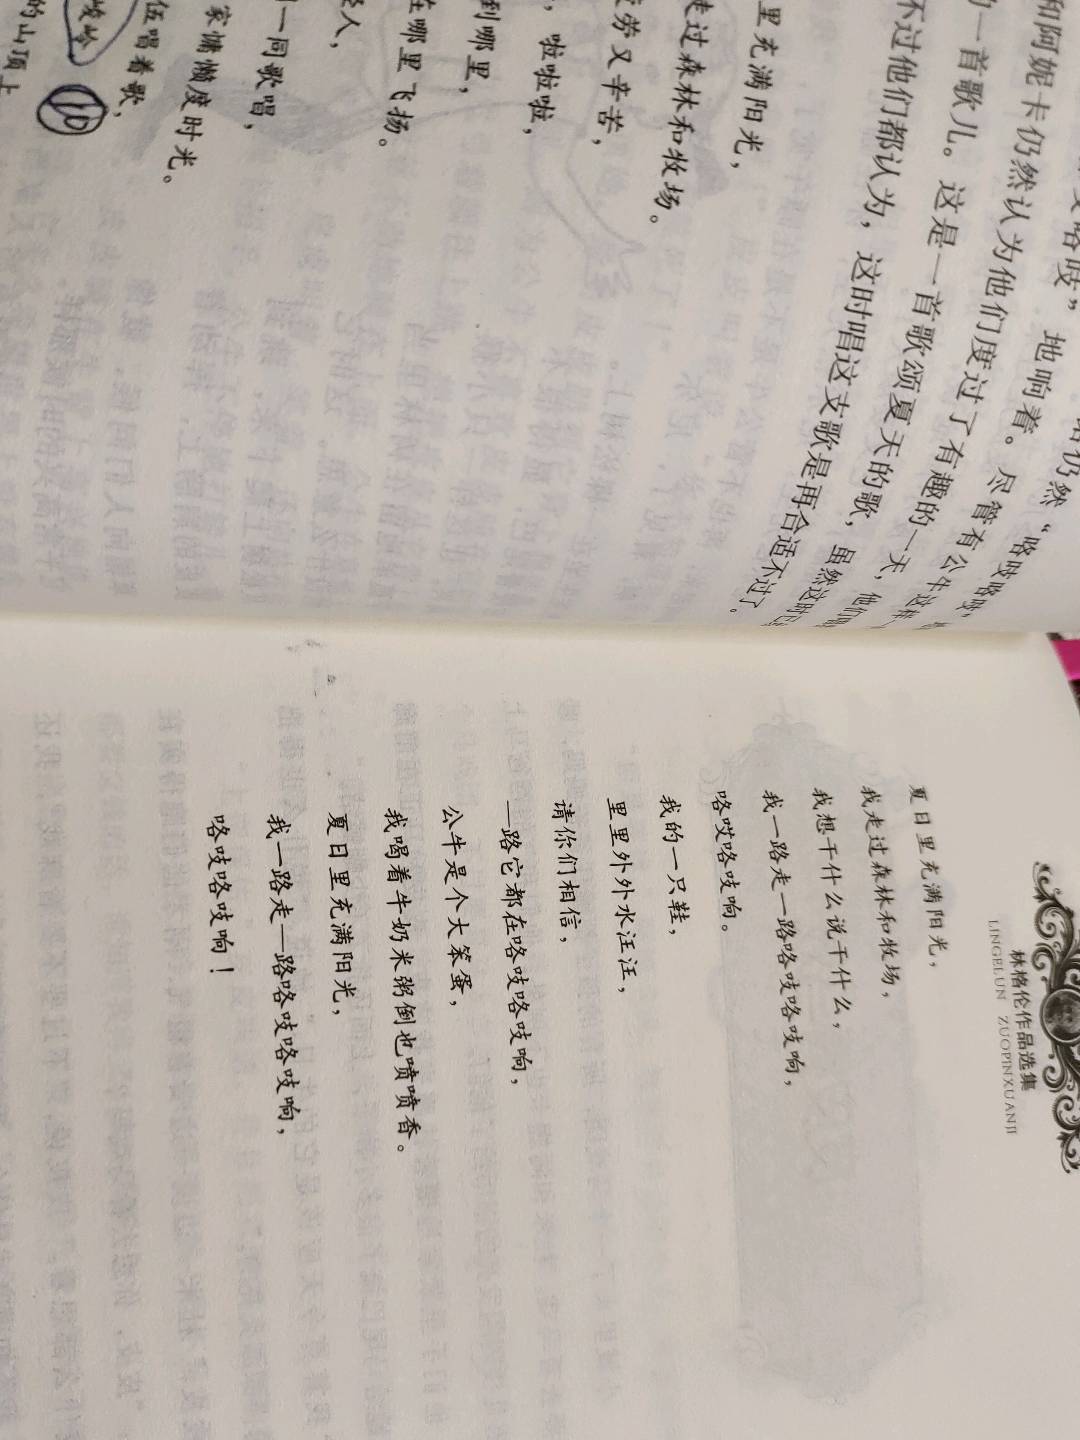 里充满阳光，
走过森林和牧场。
劳又辛苦，
，啦啦啦，
到哪里，
在哪里飞扬。
人，
一同歌唱，
家慵懒度时光。
伍唱着歌，
峻岭
的山顶上
咯吱”地响着。尽管有公牛这
和阿妮卡仍然认为他们度过了有趣的一天，他们
一首歌儿。这是一首歌颂夏天的歌，虽然这时
不过他们都认为，这时唱这支歌是再合适不过了。
林格伦作品选集
LINGELUN ZUOPINXUANJI
夏日里充满阳光，
我走过森林和牧场，
我想干什么说干什么，
我一路走一路咯吱咯吱响，
咯哎咯吱响。
我的一只鞋，
里里外外水汪汪，
请你们相信，
一路它都在咯吱咯吱响，
公牛是个大笨蛋，
我喝着牛奶米粥倒也喷喷香。
夏日里充满阳光，
我一路走一路咯吱咯吱响，
咯吱咯吱响！